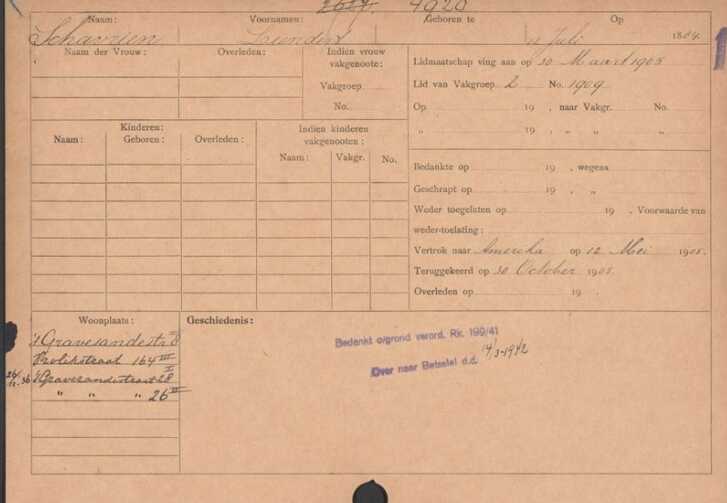 4920
Naam: Voornamen: Geboren te Op
Schavrien 11 Juli 1884.
Naam der Vrouw: Overleden: Indien vrouw vakgenoote:
Vakgroep
No.
Lidmaatschap ving aan op 30 Maart 1908
Lid van Vakgroep 2 No. 1909
Op 19 , naar Vakgr. No.
„ 19 , „ „ „
Kinderen:
Naam: Geboren: Overleden: Indien kinderen vakgenooten:
Naam: Vakgr. No.
Bedankte op 19 , wegens
Geschrapt op 19 , „
Weder toegelaten op 19 , Voorwaarde van
weder-toelating:
Vertrok naar Amerika op 12 Mei 1908.
Teruggekeerd op 30 October 1908.
Overleden op 19 .
Woonplaats: Geschiedenis:
's Gravesandestr
Vrolikstraat 164 III
's Gravesandestraat 28 I
„ „ „ 26 II
Bedankt o/grond verord. Rk. 199/41
Over naar Betsalel d.d. 14/3-1942